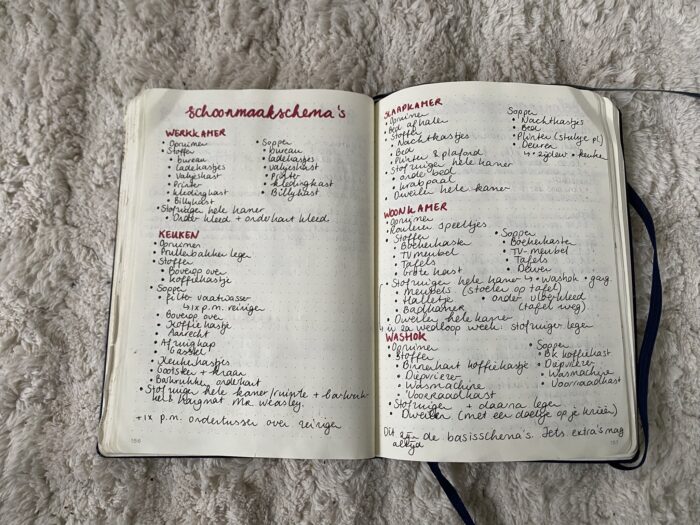 schoonmaakschema's
WERKKAMER
• Opruimen
• Stoffen
• bureau
• ladekastjes
• Valyskast
• Printer
• kledingkast
• Billykast
• Soppen
• bureau
• ladekastjes
• valyskast
• Printer
• kledingkast
• Billykast
• Stofzuigen hele kamer
• Onder kleed + onderkant kleed
KEUKEN
• Opruimen
• Prullenbakken legen
• Stoffen
• Bovenop oven
• koffiekastje
• Soppen
• Filter vaatwasser
↳ 1x p.m. reinigen
• Bovenop oven
• Koffiekastje
• Aanrecht
• Afzuigkap
• Keukenkastjes
• Gootsteen + kraan
• Bakbrukken onderkant
• Stofzuigen hele kamer/ruimte +
hele hangmat Mr. Weasley.
+ 1x p.m. ondertussen oven reinigen
156
SLAAPKAMER
• Opruimen
• Bed afhalen
• Stoffen
• Nachtkastjes
• Bed
• Plinten & plafond
• Stofzuigen hele kamer
• onder bed
• krabpaal
• Dweilen hele kamer
Soppen
• Nachtkastjes
• Bed
• Plinten (stukje p.)
• Deuren
WOONKAMER
• Opruimen
• Rouleren speeltjes
• Stoffen
• Boekenkasten
• TV meubel
• Tafels
• Grote kast
• Soppen
• Boekenkasten
• TV-meubel
• Tafels
• Deuren
• Stofzuigen hele kamer ↳ • washok • gang
• Meubels (stoelen op tafel)
• Halletje
• Badkamer
• onder vloerkleed
(tafel weg)
• Dweilen hele kamer
↳ in 2a wedloop week: stofzuiger legen
WASHOK
• Opruimen
• Stoffen
• Binnenkant koffiekastje
• Diepvriezer
• Wasmachine
• Voorraadkast
• Soppen
• Bk koffiekast
• Diepvriezer
• Wasmachine
• Voorraadkast
• Stofzuigen + daarna legen
• Dweilen (met een doekje op je knieën)
Dit zijn de basisschema's. Iets extra's mag
altijd
157